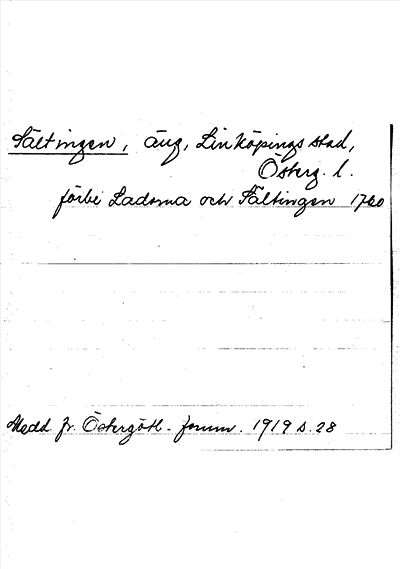 Fältingen, äng, Linköpings stad,
Österg. l.
förbi Ladorna och Fältingen 1760
Medd. fr. Östergötl. fornm. 1919 s. 28